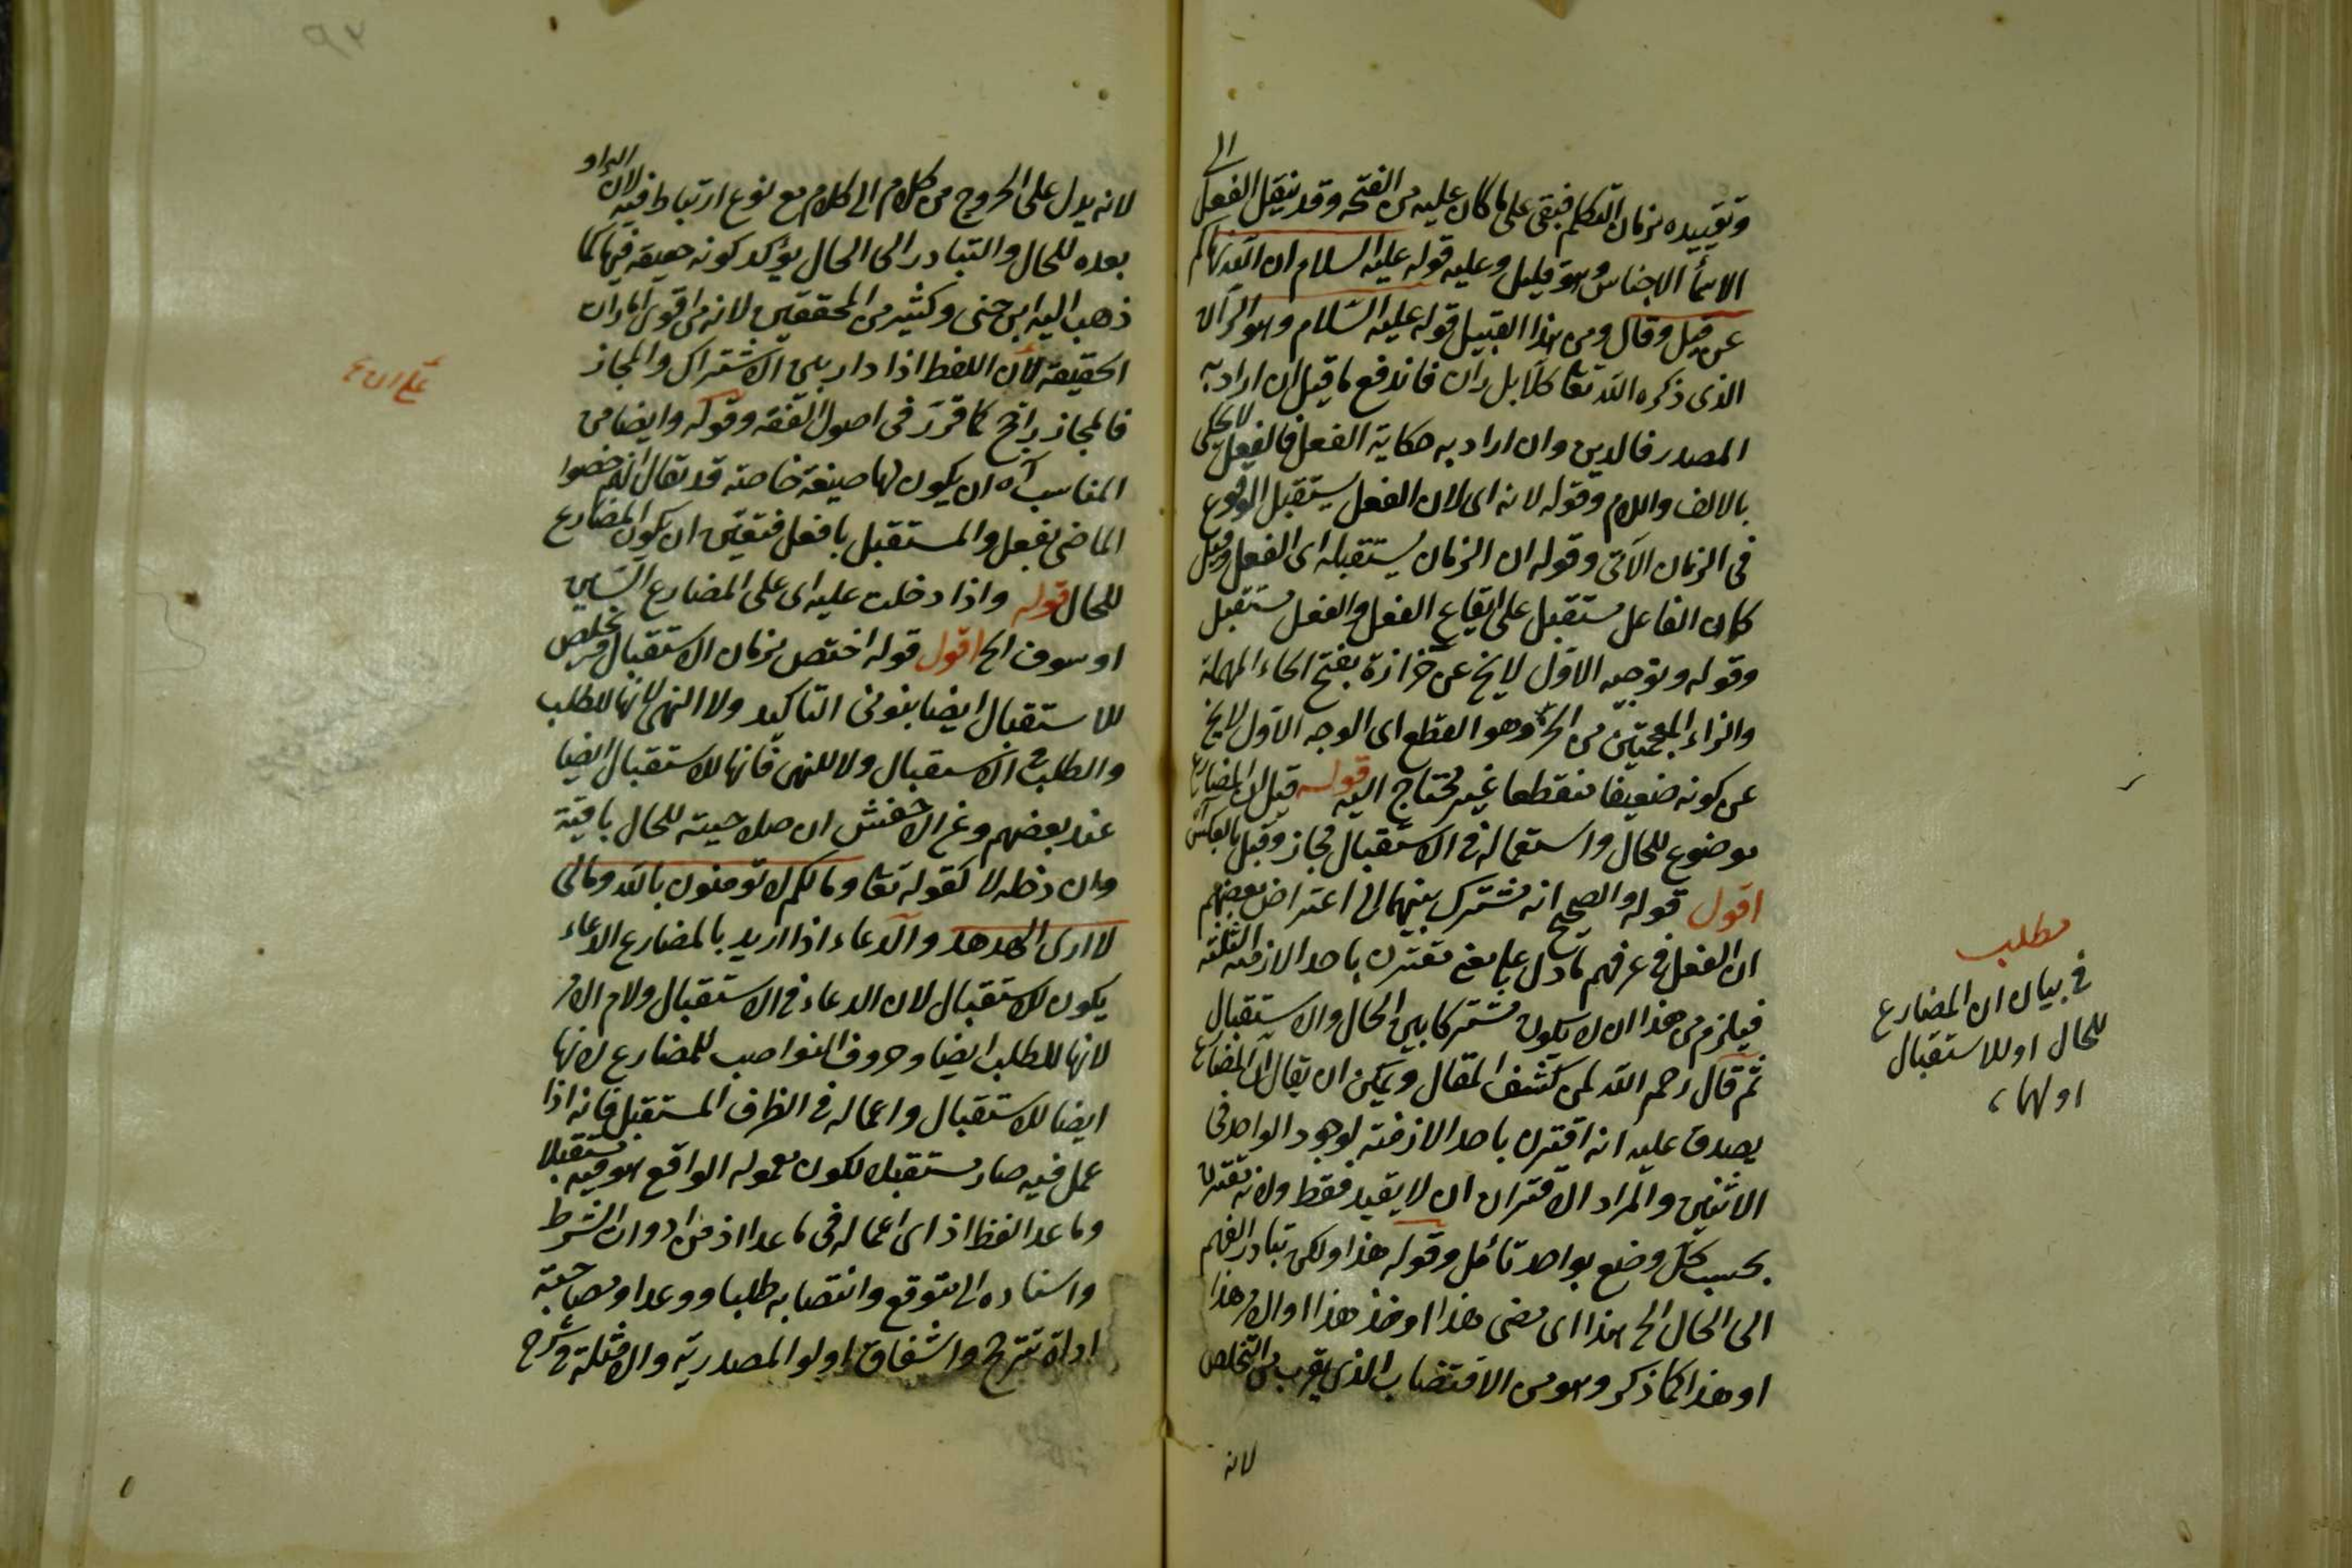 وتقييده بزمان التكلم فبقى على ما كان عليه من الفتحة وقد ينقل الفعل الى
الاسماء الاجناس وهو قليل وعليه قوله عليه السلام ان الله نهاكم
عن قيل وقال ومن هذا القبيل قوله عليه السلام وهو الران
الذى ذكره الله تعا كلا بل ران فاندفع ما قيل ان اراد به
المصدر فالدين وان اراد به حكاية الفعل فالفعل لا يحلى
بالالف واللام وقوله لانه اى لان الفعل يستقبل الوقوع
فى الزمان الآتى وقوله ان الزمان يستقبله اى الفعل وقيل
كان الفاعل مستقبل على ايقاع الفعل والفعل مستقبل
وقوله وتوجيه الاول لا يخ عن حزازة بفتح الحاء المهملة
والزاء المعجمتين من الحز وهو القطع اى الوجه الاول لا يخ
عن كونه ضعيفا منقطعا غير محتاج اليه قوله قيل ان المضارع
موضوع للحال واستعماله فى الاستقبال مجاز وقيل بالعكس
اقول قوله والصحيح انه مشترك بينهما الى اعتراض بعضهم
ان الفعل فى عرفهم ما دل على معنى مقترن باحد الازمنة الثلثة
فيلزم من هذا ان لا يكون مشتركا بين الحال والاستقبال
ثم قال رحم الله لمن كشف المقال ويمكن ان يقال ان المضارع
يصدق عليه انه اقترن باحد الازمنة لوجود الواحد فى
الاثنين والمراد الاقتران ان لا يقيد فقط ولانه مقترن
بحسب كل وضع بواحد تأمل وقوله هذا ولكن تبادر الفهم
الى الحال الخ هذا اى مضى هذا او خذ هذا او الامر هذا
او هذا كما ذكر وهو من الاقتضاب الذى يقرب من التخلص
لانه
مطلب
فى بيان ان المضارع
للحال او للاستقبال
او لهما
لانه يدل على الخروج من كلام الى كلام مع نوع ارتباط فيه لان الواو
بعده للحال والتبادر الى الحال يؤكد كونه حقيقة فيها كما
ذهب اليه ابن جنى وكثير من المحققين لانه من اقوى امارات
الحقيقة لأن اللفظ اذا دار بين الاشتراك والمجاز
فالمجاز راجح كما قرر فى اصول الفقه وقوله وايضا من
المناسب آه ان يكون لها صيغة خاصة قد يقال انهم خصوا
الماضى بفعل والمستقبل بافعل فتعين ان يكون المضارع
للحال قوله واذا دخلت عليه اى على المضارع السين
او سوف الخ اقول قوله اختص بزمان الاستقبال ويخلص
للاستقبال ايضا بنونى التاكيد ولا النهى لانها للطلب
والطلب فى الاستقبال ولا للنهى فانها للاستقبال ايضا
عند بعضهم وعن الاخفش ان صلاحيته للحال باقية
وان دخله لا كقوله تعا وما لكم لا تومنون بالله ومالى
لا ارى الهدهد والدعاء اذا اريد بالمضارع الدعاء
يكون للاستقبال لان الدعاء فى الاستقبال ولام الامر
لانها للطلب ايضا وحروف النواصب للمضارع لانها
ايضا للاستقبال واعماله فى الظرف المستقبل فانه اذا
عمل فيه صار مستقبلا لكون معموله الواقع هو فيه مستقبلا
وما عدا لفظ اذ اى اعماله فى ما عدا اذ من ادوات الشرط
واسناده الى متوقع وانتصابه طلبا ووعدا ومصاحبة
اداة ترج واشفاق او لو المصدرية والامثلة فى شرح